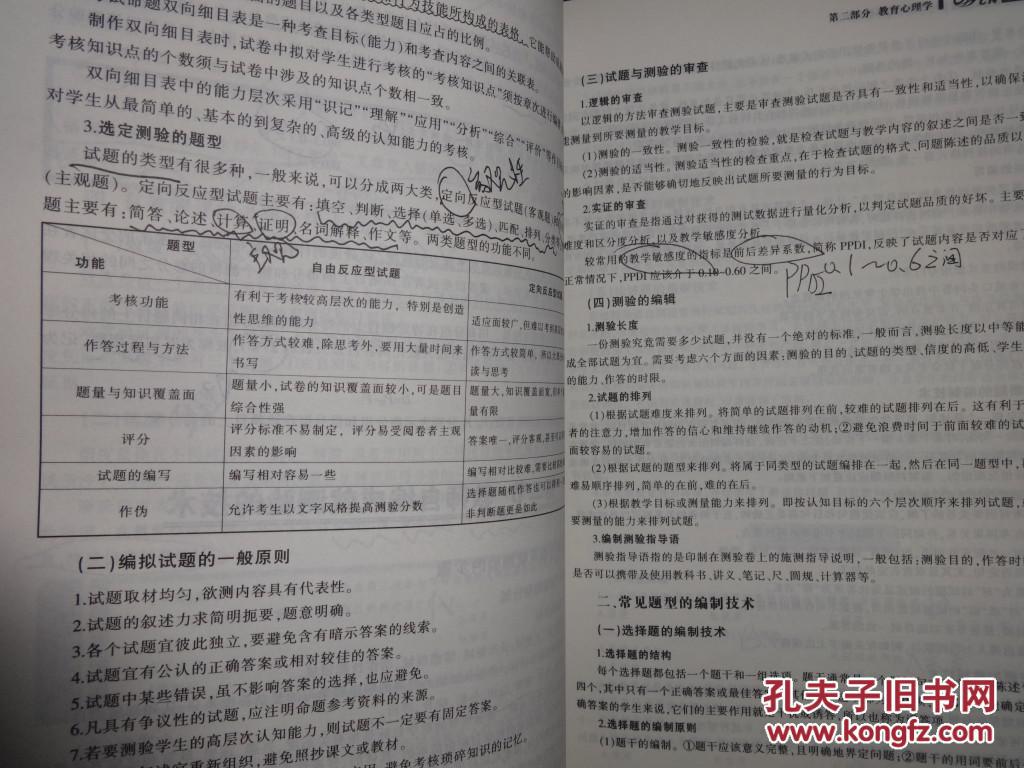 试命题双向细目表是一种考查目标(能力)和考查内容之间的关联表。
制作双向细目表时,试卷中拟对学生进行考核的“考核知识点”须按章次进行编
考核知识点的个数须与试卷中涉及的知识点个数相一致。
双向细目表中的能力层次采用“识记”“理解”“应用”“分析”“综合”“评价”等作
对学生从最简单的、基本的到复杂的、高级的认知能力的考核。
3.选定测验的题型
试题的类型有很多种,一般来说,可以分成两大类,定向反应型试题(客观题)
(主观题)。定向反应型试题主要有:填空、判断、选择(单选、多选)、匹配、排列、
题主要有:简答、论述、计算、证明、名词解释、作文等。两类题型的功能不同。
题型
功能
自由反应型试题
定向反应型试
考核功能
有利于考核较高层次的能力，特别是创造
性思维的能力
适应面较广,但难以考核
作答过程与方法
作答方式较难,除思考外,要用大量时间来
书写
作答方式较简单,
读与思考
题量与知识覆盖面
题量小,试卷的知识覆盖面较小,可是题目
综合性强
题量大,知识覆盖面宽,
量有限
评分
评分标准不易制定，评分易受阅卷者主观
因素的影响
答案唯一,评分客观,
试题的编写
编写相对容易一些
编写相对比较难,需要
作伪
允许考生以文字风格提高测验分数
选择题随机作答也可以
非判断题更是如此
(二)编拟试题的一般原则
1.试题取材均匀,欲测内容具有代表性。
2.试题的叙述力求简明扼要,题意明确。
3.各个试题宜彼此独立,要避免含有暗示答案的线索。
4.试题宜有公认的正确答案或相对较佳的答案。
5.试题中某些错误,虽不影响答案的选择,也应避免。
6.凡具有争议性的试题,应注明命题参考资料的来源。
7.若要测验学生的高层次认知能力,则试题不一定要有固定答案。
重新组织,避免照抄课文或教材。
避免考核琐碎知识的记忆。
第二部分 教育心理学
(三)试题与测验的审查
1.逻辑的审查
以逻辑的方法审查测验试题,主要是审查测验试题是否具有一致性和适当性,以确保
能测量到所要测量的教学目标。
(1)测验的一致性。测验一致性的检验,就是检查试题与教学内容的叙述之间是否一
(2)测验的适当性。测验适当性的检查重点,在于检查试题的格式、问题陈述的品质以
的影响因素,是否能够确切地反映出试题所要测量的行为目标。
2.实证的审查
实证的审查是指通过对获得的测试数据进行量化分析,以判定试题品质的好坏。主要
难度和区分度分析,以及教学敏感度分析。
较常用的教学敏感度的指标是前后差异系数,简称 PPDI,反映了试题内容是否对应了
正常情况下,PPDI 应该介于 0.10-0.60 之间。
PPDI 0.1~0.6之间
(四)测验的编辑
1.测验长度
一份测验究竟需要多少试题,并没有一个绝对的标准,一般而言,测验长度以中等能
成全部试题为宜。需要考虑六个方面的因素:测验的目的、试题的类型、信度的高低、学生
的能力、作答的时限。
2.试题的排列
(1)根据试题难度来排列。将简单的试题排列在前,较难的试题排列在后。这有利于
者的注意力,增加作答的信心和维持继续作答的动机;②避免浪费时间于前面较难的试
面较容易的试题。
(2)根据试题的题型来排列。将属于同类型的试题编排在一起,然后在同一题型中,
难易顺序排列,简单的在前,难的在后。
(3)根据教学目标或测量能力来排列。即按认知目标的六个层次顺序来排列试题,
要测量的能力来排列试题。
3.编制测验指导语
测验指导语指的是印制在测验卷上的施测指导说明,一般包括:测验目的,作答时
是否可以携带及使用教科书、讲义、笔记、尺、圆规、计算器等。
二、常见题型的编制技术
(一)选择题的编制技术
1.选择题的结构
每个选择题都包括一个题干和一组选项。题干通常是一个
四个,其中只有一个正确答案或最佳答
确答案的学生来说,它们的主要作用就
2.选择题的编制原则
(1)题干的编制。①题干应该意义完整,且明确地界定问题;②题干的用词要前后
孔夫子旧书网
www.kongfz.com